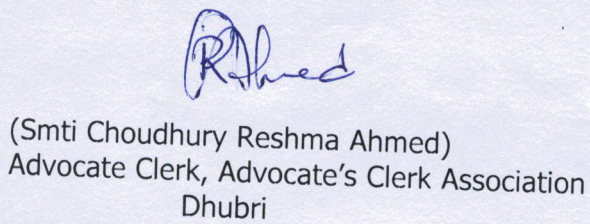 RAhmed
(Smti Choudhury Reshma Ahmed)
Advocate Clerk, Advocate's Clerk Association
Dhubri